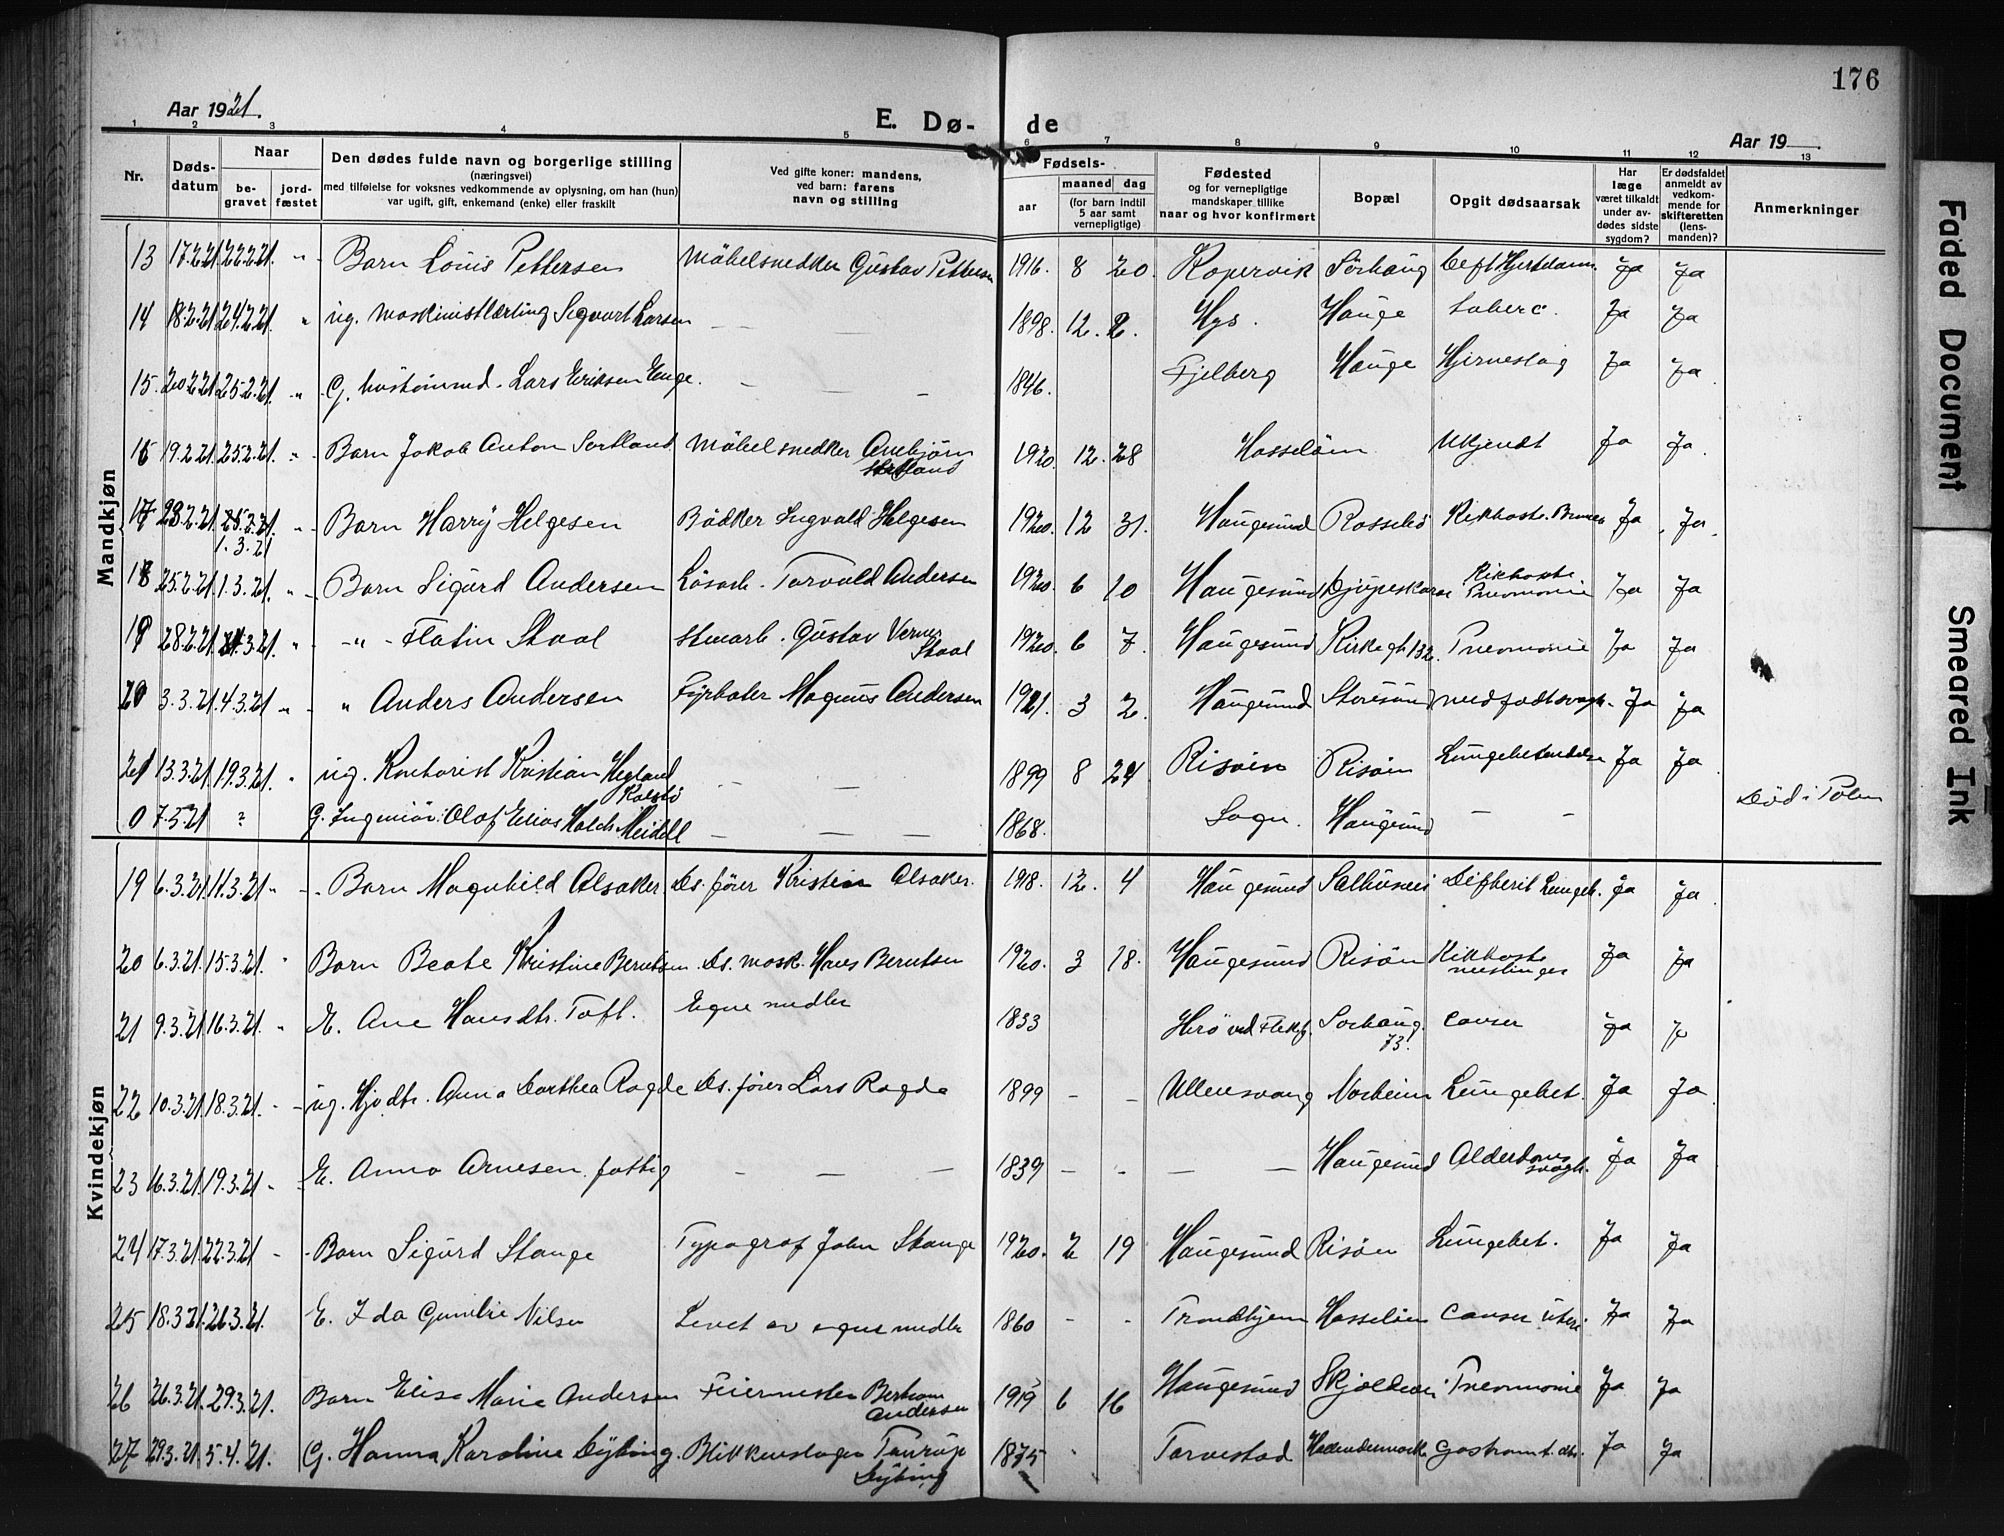 176
Aar 1921.
E. Dø- de
Aar 19
1 2 3 4 5 6 7 8 9 10 11 12 13
Nr. Døds-datum Naar be-gravet jord-fæstet Den dødes fulde navn og borgerlige stilling (næringsvei) med tilføielse for voksnes vedkommende av oplysning, om han (hun) var ugift, gift, enkemand (enke) eller fraskilt Ved gifte koner: mandens, ved barn: farens navn og stilling Fødsels- aar maaned dag (for barn indtil 5 aar samt vernepligtige) Fødested og for vernepligtige mandskaper tillike naar og hvor konfirmert Bopæl Opgit dødsaarsak Har læge været tilkaldt under av-dødes sidste sygdom? Er dødsfaldet anmeldt av vedkom-mende for skifteretten (lens-manden)? Anmerkninger
Mandkjøn
13 17.2.21 22.2.21. " Barn Louis Pettersen Möbelsnedker Gustav Pettersen 1916. 8 20. Kopervik Sörhaug Ja Ja
14 18.2.21 24.2.21. " ug. Maskinistlærling Sigvart Larsen — — 1898. 12. 2. Hauge Ja Ja
15. 20.2.21 25.2.21. " G. Lars Eriksen Enge. — — 1846. Fjelberg Hauge Hjerneslag Ja Ja
16 19.2.21. 25.2.21. " Barn Jakob Anton Sortland Möbelsnedker Arnbjörn Sortland 1920. 12. 28 Hasselöen Ukjendt Ja Ja.
17 23.2.21. 25.2.21. 1.3.21 " Barn Harry Helgesen Bödker Ingvald Helgesen 1920. 12 31. Haugesund Kikhoste. Ja Ja.
18 25.2.21. 1.3.21. " Barn Sigurd Andersen Lösarb. Torvald Andersen 1920. 6 10 Haugesund Kikhoste Pneomonie Ja Ja
19 28.2.21. 3.21. " -"- Flatin Skaal Gustav Skaal 1920. 6 7. Haugesund Kirkegt. 132. Pneomonie Ja Ja
20 3.3.21. 4.3.21. " " Anders Andersen Fyrböter Magnus Andersen 1921. 3 2. Haugesund Storesund medfødt svagh. Ja Ja
21 13.3.21. 19.3.21. " ug. Kontorist Kristian Hegland Kalstö — — 1899 8 24 Risöen Risöen Lungebetændelse Ja Ja
0 7.5.21 " G. Ingeniör Olaf Elias Holch Meidell — — — 1868. Sogn. Haugesund — — Död i Polen
Kvindekjøn
19 6.3.21. 11.3.21. " Barn Magnhild Alsaker Ds. förer Kristen Alsaker. 1918. 12. 4 Haugesund Salhusvei Difterit Lungeb. Ja Ja
20 6.3.21. 15.3.21. " Barn Beate Kristine Berntsen Ds. mask. Hans Berntsen 1920. 3 18. Haugesund Risöen Kikhoste meslinger Ja Ja
21 9.3.21. 16.3.21. " E. Ane Hansdtr. Toft. Egne midler 1833 Herö ved Flekkf. Sörhaug. 73. Cancer Ja Ja
22 10.3.21. 18.3.21. " ug. Hjvdtr. Anna Dorthea Ragde Ds. förer Lars Ragde 1899 - - Ullensvang Norheim Lungebet. Ja Ja
23 16.3.21. 19.3.21. " E. Anna Arnesen, fattig — — — 1839 - - — — Haugesund Alderdoms svagh. Ja Ja
24 17.3.21. 22.3.21 - Barn Sigurd Stange Typograf John Stange 1920. 2 19 Haugesund Risöen Lungebet. Ja Ja
25 18.3.21. 21.3.21. E. Ida Nilsen Levet av egne midler 1860 - - Trondhjem Hasselöen Cancer uteri Ja Ja
26 26.3.21. 29.3.21. Barn Elise Marie Andersen Feiermester Andersen 1919 6 16 Haugesund Skjoldevei Pneomonie Ja Ja
27 29.3.21. 5.4.21. G. Hanna Karoline Dybing. Blikkenslager Dybing 1875 Torvestad Ja Ja
Faded Document
Smeared Ink